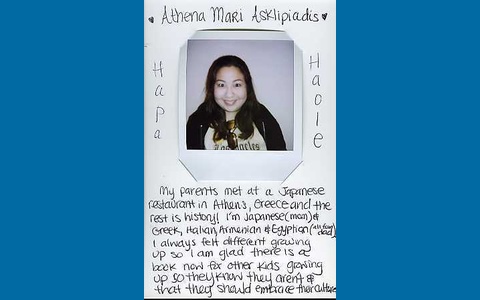 ♥ Athena Mari Asklipiadis ♥
Hapa
Haole
My parents met at a Japanese
restaurant in Athens, Greece and the
rest is history! I'm Japanese (mom) &
Greek, Italian, Armenian & Egyptian (dad)
I always felt different growing
up so I am glad there is a
book now for other kids growing
up so they know they aren't &
that they should embrace their culture